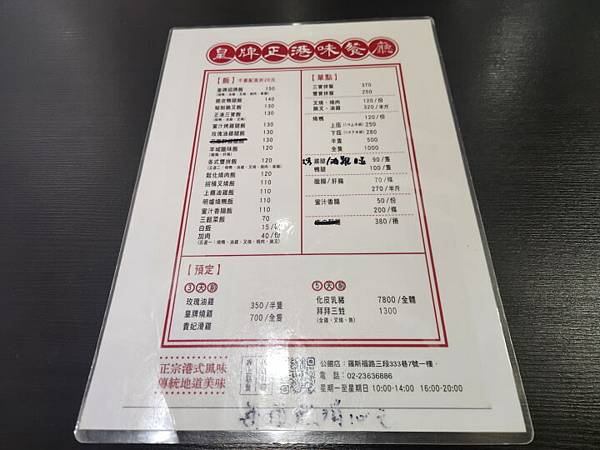 皇牌正港味餐廳
【飯】不要配菜折20元
皇牌招牌飯 150
脆皮鴨腿飯 140
秘制鵝叉飯 130
正港三寶飯 130
蜜汁烤雞腿飯 130
玫瑰油雞腿飯 130
130
羊城臘味飯 120
各式雙拼飯 120
脆化燒肉飯 120
招積叉燒飯 110
上蔬油雞飯 110
明爐燒鴨飯 110
蜜汁香腸飯 110
三餸菜飯 70
白飯 15/
加肉 40/份
(五選一：燒鴨、油雞、叉燒、燒肉、鵝叉)
【單點】
三寶拼盤 370
雙寶拼盤 250
叉燒、燒肉 120/份
鵝叉、油雞 320/半斤
燒鴨 120/份
上庄 250
下庄 280
半隻 500
全隻 1000
雞腿 90/隻
鴨腿 100/隻
臘腸/肝腸 70/條
270/半斤
蜜汁香腸 50/份
200/條
380/捲
【預定】
3天前
玫瑰油雞 350/半隻
皇牌燒雞 700/全隻
貴妃滑雞
5天前
化皮乳豬 7800/全體
拜拜三牲 1300
(全雞、叉燒、魚)
正宗港式風味
傳統地道美味
公館店：羅斯福路三段333巷7號一樓．
電 話：02-23636886
星期一至星期日 10:00-14:00 16:00-20:00